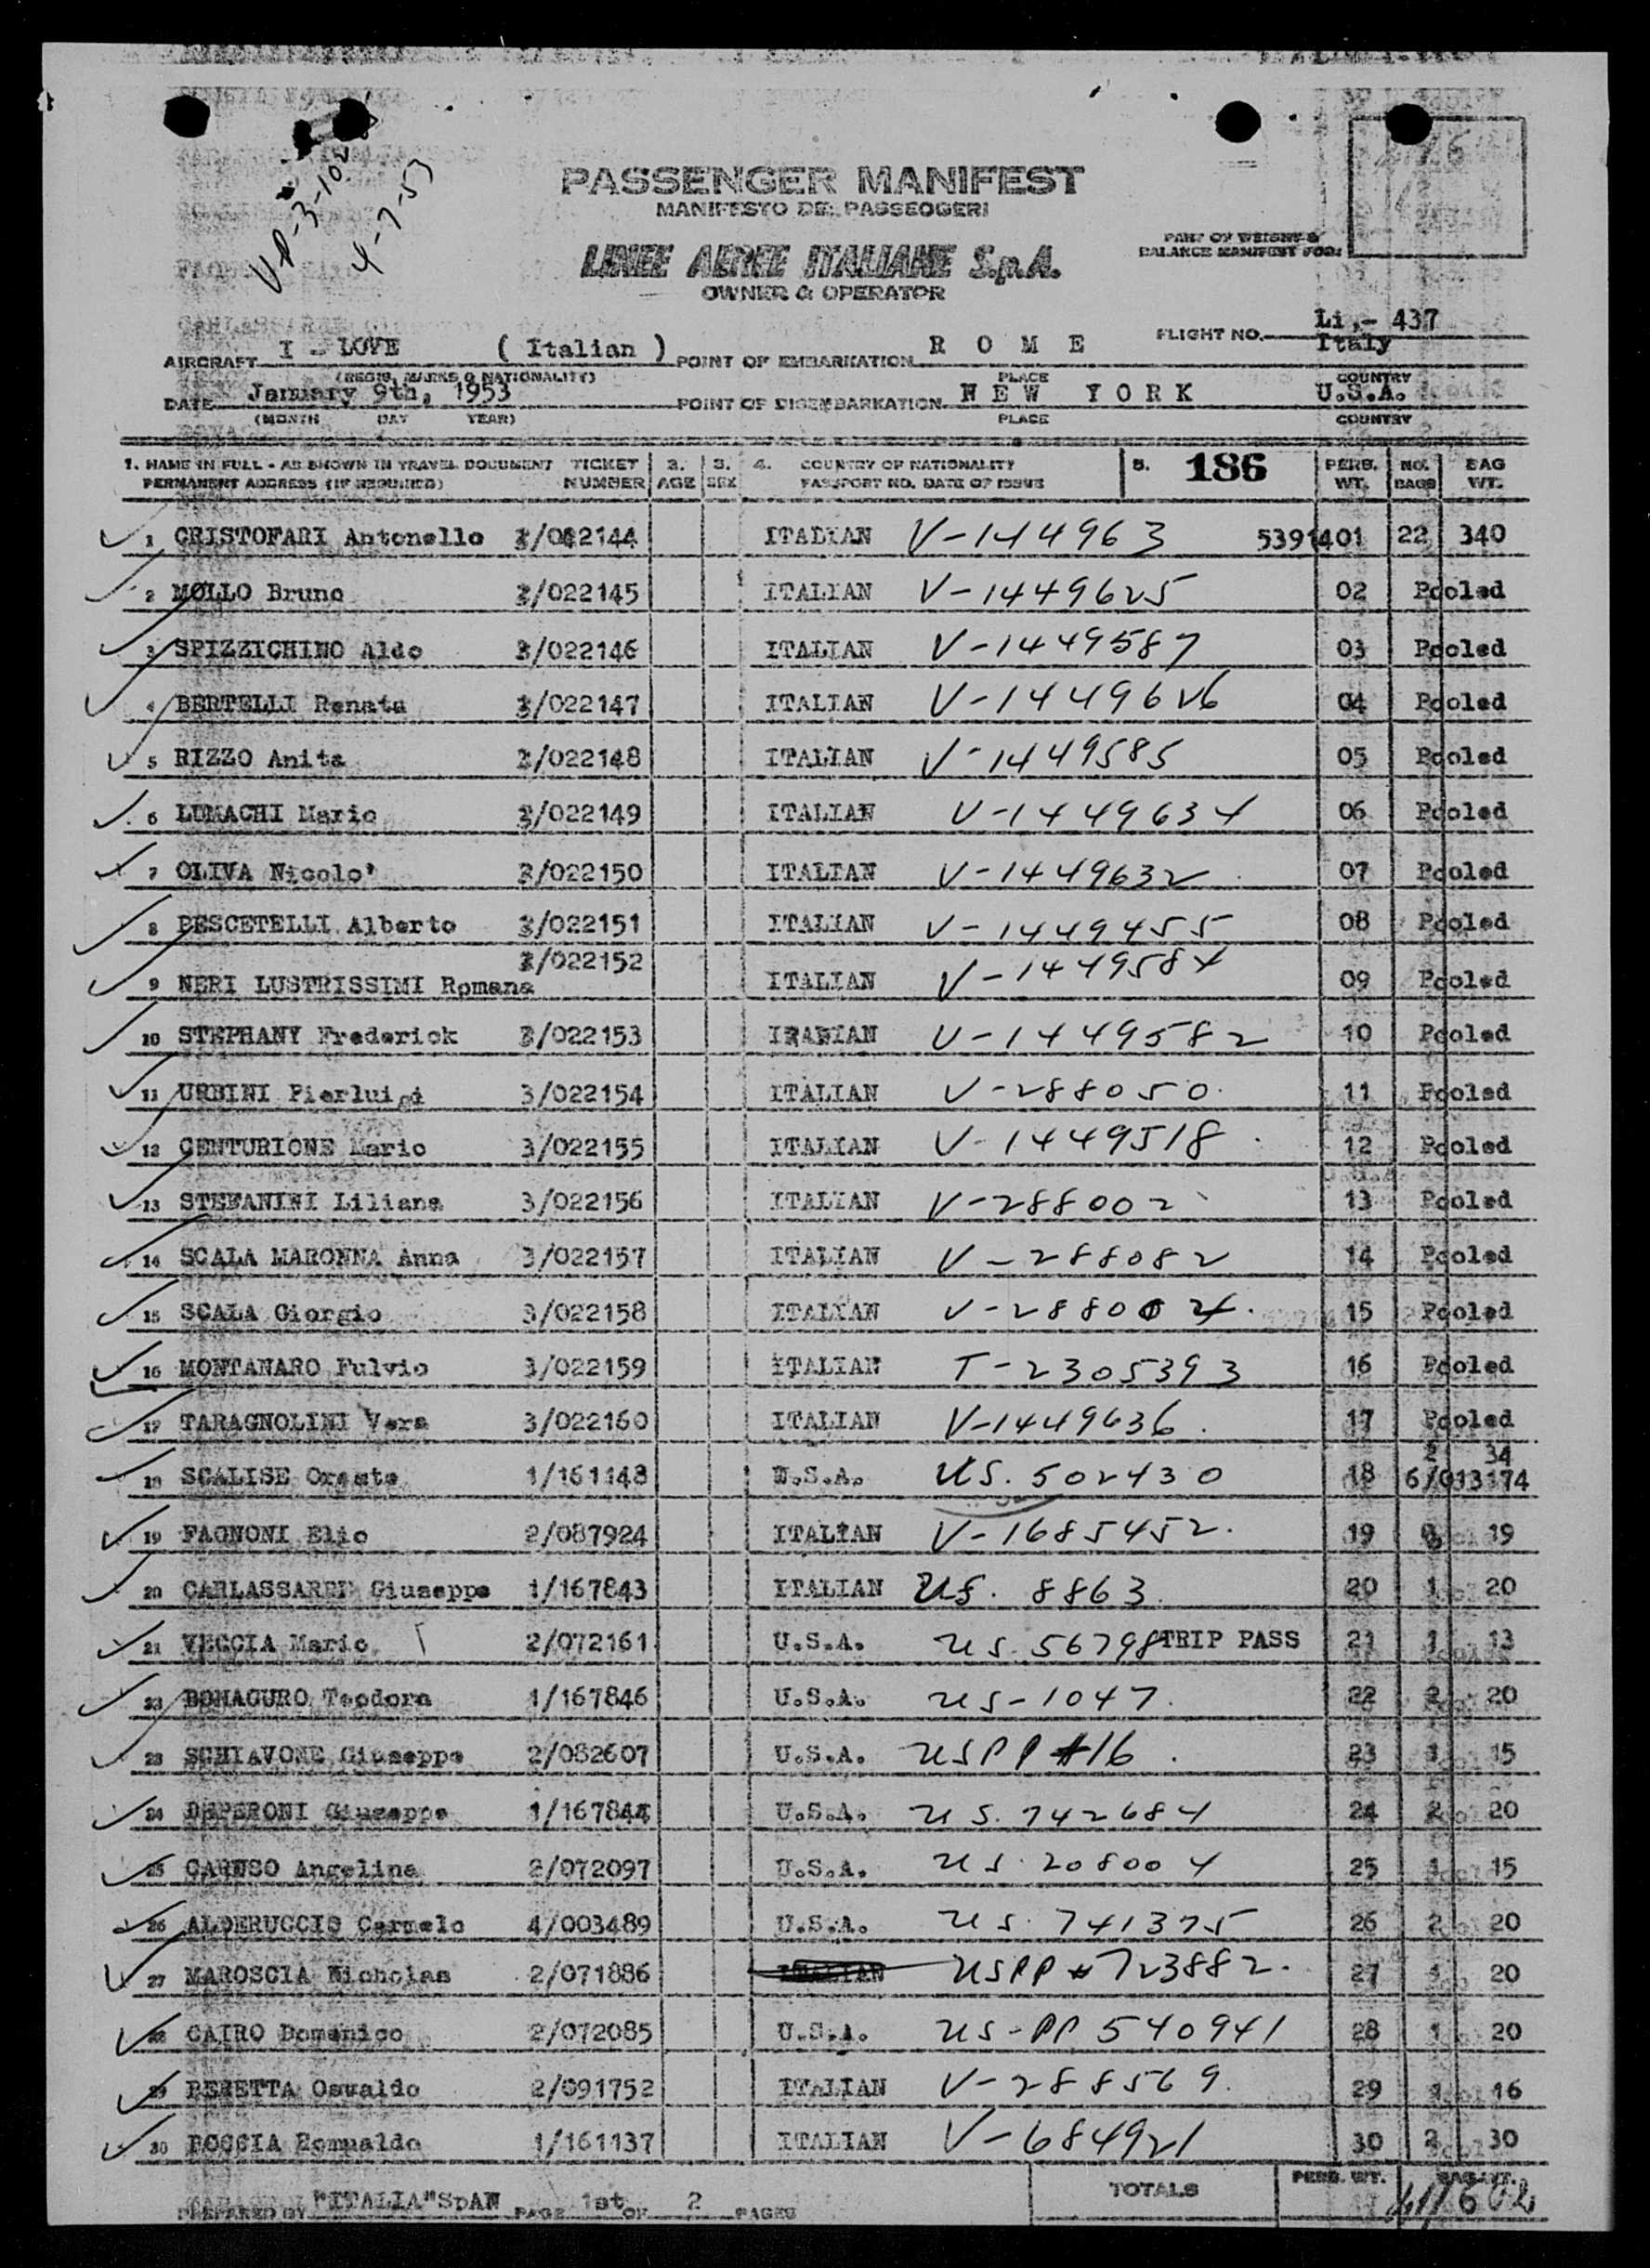 VP-3-10
4-7-53
PASSENGER MANIFEST
MANIFESTO DEI PASSEGGERI
PART OF WEIGHT &
BALANCE MANIFEST FOR:
LINEE AEREE ITALIANE S.p.A.
OWNER & OPERATOR
FLIGHT NO. Li.- 437
AIRCRAFT I - LOVE ( Italian ) POINT OF EMBARKATION R O M E Italy
(REGIS. MARKS & NATIONALITY) PLACE COUNTRY
DATE January 9th, 1953 POINT OF DISEMBARKATION N E W Y O R K U.S.A.
(MONTH DAY YEAR) PLACE COUNTRY
1. NAME IN FULL - AS SHOWN IN TRAVEL DOCUMENT TICKET 2. 3. 4. COUNTRY OF NATIONALITY 5. 186 PERS. NO. BAG
PERMANENT ADDRESS (IF REQUIRED) NUMBER AGE SEX PASSPORT NO. DATE OF ISSUE WT. BAGS WT.
1 CRISTOFARI Antonello 3/022144 ITALIAN V-144963 5391401 22 340
2 MOLLO Bruno 3/022145 ITALIAN V-1449625 02 Pooled
3 SPIZZICHINO Aldo 3/022146 ITALIAN V-1449587 03 Pooled
4 BERTELLI Renata 3/022147 ITALIAN V-1449626 04 Pooled
5 RIZZO Anita 3/022148 ITALIAN V-1449585 05 Pooled
6 LUMACHI Mario 3/022149 ITALIAN V-1449634 06 Pooled
7 OLIVA Nicolo' 3/022150 ITALIAN V-1449632 07 Pooled
8 PESCETELLI Alberto 3/022151 ITALIAN V-1449455 08 Pooled
9 NERI LUSTRISSIMI Romana 3/022152 ITALIAN V-1449584 09 Pooled
10 STEPHANY Frederick 3/022153 V-1449582 10 Pooled
11 URBINI Pierluigi 3/022154 ITALIAN V-288050 11 Pooled
12 CENTURIONE Mario 3/022155 ITALIAN V-1449518 12 Pooled
13 STEFANINI Liliana 3/022156 ITALIAN V-288002 13 Pooled
14 SCALA MARONNA Anna 3/022157 ITALIAN V-288082 14 Pooled
15 SCALA Giorgio 3/022158 ITALIAN V-288004 15 Pooled
16 MONTANARO Fulvio 3/022159 ITALIAN T-2305393 16 Pooled
17 TARAGNOLINI Vera 3/022160 ITALIAN V-1449636 17 Pooled
18 SCALISE Oreste 1/161148 U.S.A. US. 502430 18 2 34 6/013174
19 FAGNONI Elio 2/087924 ITALIAN V-1685452 19 19
20 CARLASSARE Giuseppe 1/167843 ITALIAN US. 8863 20 1 20
21 VECCIA Mario 2/072161 U.S.A. US. 56798 TRIP PASS 21 1 13
22 BONAGURO Teodora 1/167846 U.S.A. US-1047 22 2 20
23 SCHIAVONE Giuseppe 2/082607 U.S.A. USPP #16 23 1 15
24 DEPERONI Giuseppe 1/167844 U.S.A. US. 742684 24 2 20
25 CARUSO Angelina 2/072097 U.S.A. US 208004 25 1 15
26 ALDERUCCIO Carmelo 4/003489 U.S.A. US. 741375 26 2 20
27 MAROSCIA Nicholas 2/071886 ITALIAN USPP #723882 27 1 20
28 CAIRO Domenico 2/072085 U.S.A. US-PP 540941 28 1 20
29 PERETTA Oswaldo 2/091752 ITALIAN V-288569 29 1 16
30 POCCIA Romualdo 1/161137 ITALIAN V-684921 30 2 30
TOTALS PERS. WT. BAG WT.
PREPARED BY "ITALIA"SpAN PAGE 1st OF 2 PAGES